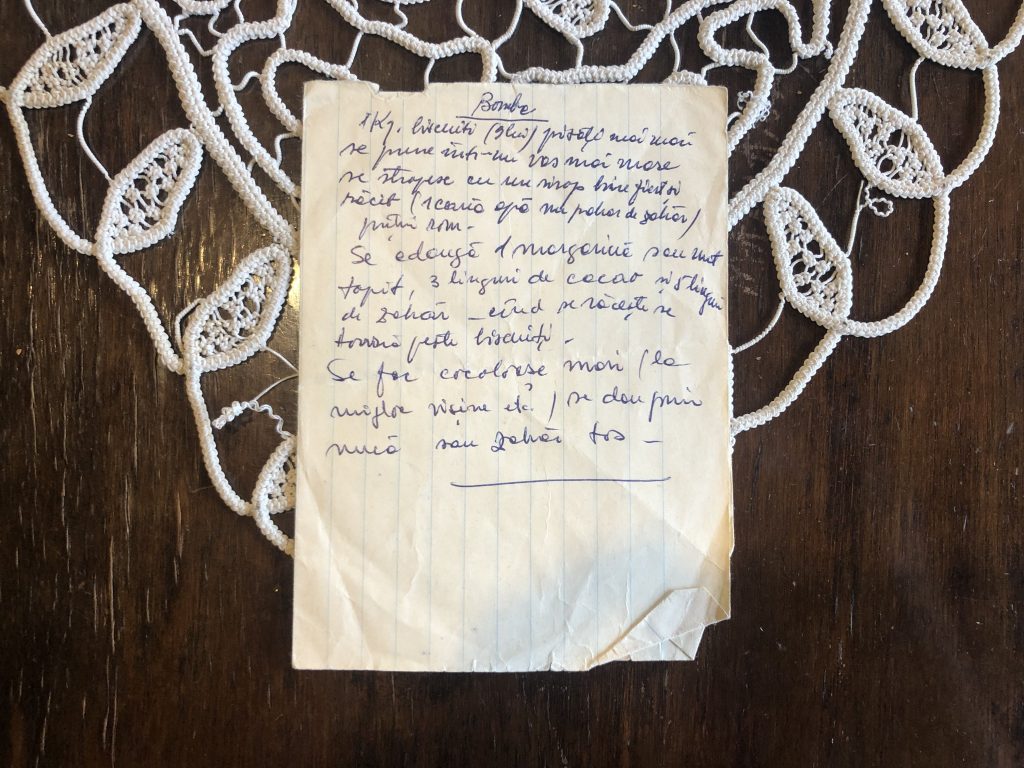 Bombe
1 Kg. biscuiti () pisați mai mari
se pune într-un vas mai mare
se stropesc cu un sirop bine fiert și
răcit (1 cană apă un pahar de zahăr)
puțin rom.
Se adaugă 1 margarină sau unt
topit, 3 linguri de cacao și 5 linguri
de zahăr - cînd se răcește se
toarnă peste biscuiți.
Se fac cocoloașe mari (la
mijloc vișine etc) se dau prin
nucă sau zahăr tos -